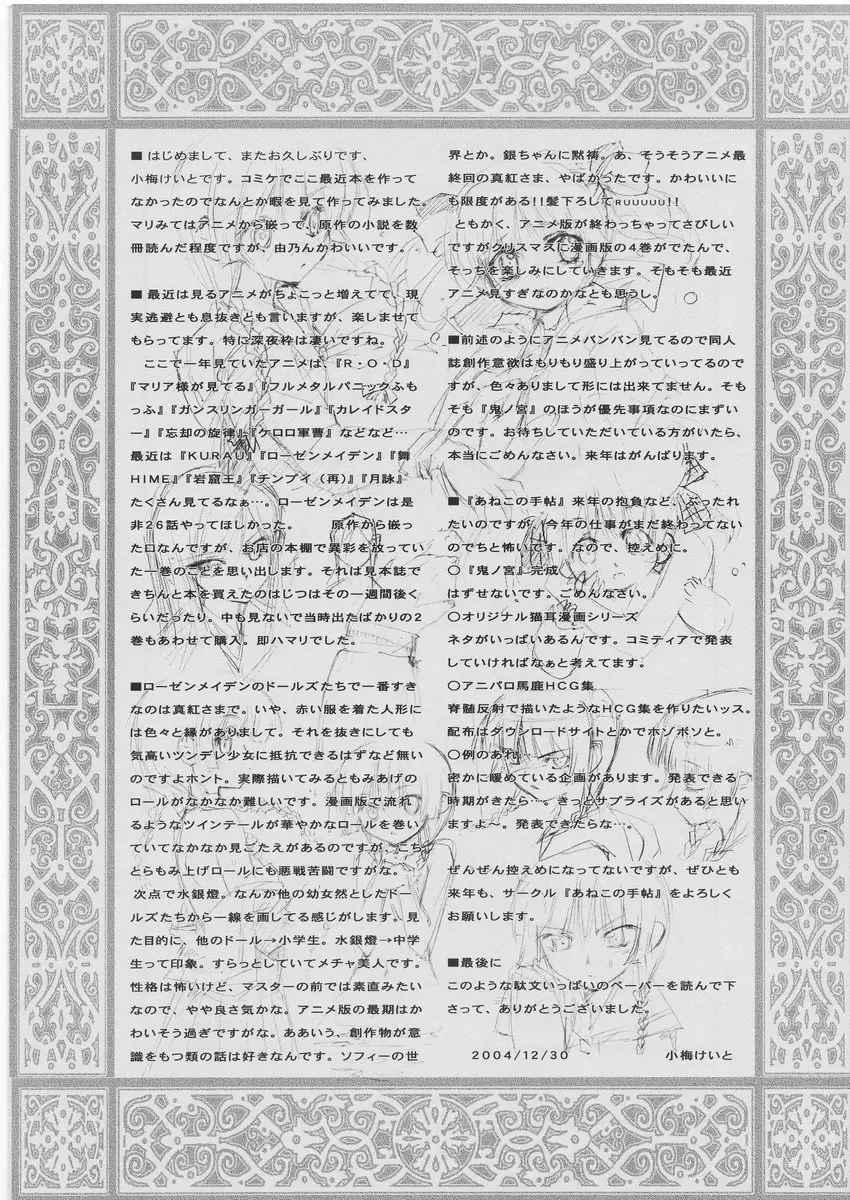 ■ はじめまして、またお久しぶりです、
小梅けいとです。コミケでここ最近本を作って
なかったのでなんとか暇を見て作ってみました。
マリみてはアニメから嵌って、原作の小説を数
冊読んだ程度ですが、由乃んかわいいです。
■ 最近は見るアニメがちょこっと増えてて、現
実逃避とも息抜きとも言いますが、楽しませて
もらってます。特に深夜枠は凄いですね。
ここで一年見ていたアニメは、『R・O・D』
『マリア様が見てる』『フルメタルパニックふも
っふ』『ガンスリンガーガール』『カレイドスタ
ー』『忘却の旋律』『ケロロ軍曹』などなど…
最近は『KURAU』『ローゼンメイデン』『舞
HIME』『岩窟王』『チンプイ（再）』『月詠』
たくさん見てるなぁ…。ローゼンメイデンは是
非26話やってほしかった。　　原作から嵌っ
た口なんですが、お店の本棚で異彩を放ってい
た一巻のことを思い出します。それは見本誌で
きちんと本を買えたのはじつはその一週間後く
らいだったり。中も見ないで当時出たばかりの2
巻もあわせて購入。即ハマりでした。
■ローゼンメイデンのドールズたちで一番すき
なのは真紅さまで。いや、赤い服を着た人形に
は色々と縁がありまして。それを抜きにしても
気高いツンデレ少女に抵抗できるはずなど無い
のですよホント。実際描いてみるともみあげの
ロールがなかなか難しいです。漫画版で流れ
るようなツインテールが華やかなロールを巻い
ていてなかなか見ごたえがあるのですが、こち
とらもみ上げロールにも悪戦苦闘ですがな。
次点で水銀燈。なんか他の幼女然としたドー
ルズたちから一線を画してる感じがします。見
た目的に、他のドール→小学生。水銀燈→中学
生って印象。すらっとしていてメチャ美人です。
性格は怖いけど、マスターの前では素直みたい
なので、やや良さ気かな。アニメ版の最期はか
わいそう過ぎですがな。ああいう、創作物が意
識をもつ類の話は好きなんです。ソフィーの世
界とか。銀ちゃんに黙祷。あ、そうそうアニメ最
終回の真紅さま、やばかったです。かわいいに
も限度がある!!髪下ろしてRUUUUU!!
ともかく、アニメ版が終わっちゃってさびしい
ですがクリスマスに漫画版の4巻がでたんで、
そっちを楽しみにしていきます。そもそも最近
アニメ見すぎなのかなとも思うし。
■前述のようにアニメバンバン見てるので同人
誌創作意欲はもりもり盛り上がっていってるので
すが、色々ありまして形には出来てません。そも
そも『鬼ノ宮』のほうが優先事項なのにまずい
のです。お待ちしていただいている方がいたら、
本当にごめんなさい。来年はがんばります。
■『あねこの手帖』来年の抱負など、ぶったれ
たいのですが、今年の仕事がまだ終わってない
のでちと怖いです。なので、控えめに。
〇『鬼ノ宮』完成
はずせないです。ごめんなさい。
〇オリジナル猫耳漫画シリーズ
ネタがいっぱいあるんです。コミティアで発表
していければなぁと考えてます。
〇アニパロ馬鹿HCG集
脊髄反射で描いたようなHCG集を作りたいッス。
配布はダウンロードサイトとかでホソボソと。
〇例のあれ…
密かに暖めている企画があります。発表できる
時期がきたら…。きっとサプライズがあると思い
ますよ～。発表できたらな…。
ぜんぜん控えめになってないですが、ぜひとも
来年も、サークル『あねこの手帖』をよろしく
お願いします。
■最後に
このような駄文いっぱいのペーパーを読んで下
さって、ありがとうございました。
2004/12/30　小梅けいと